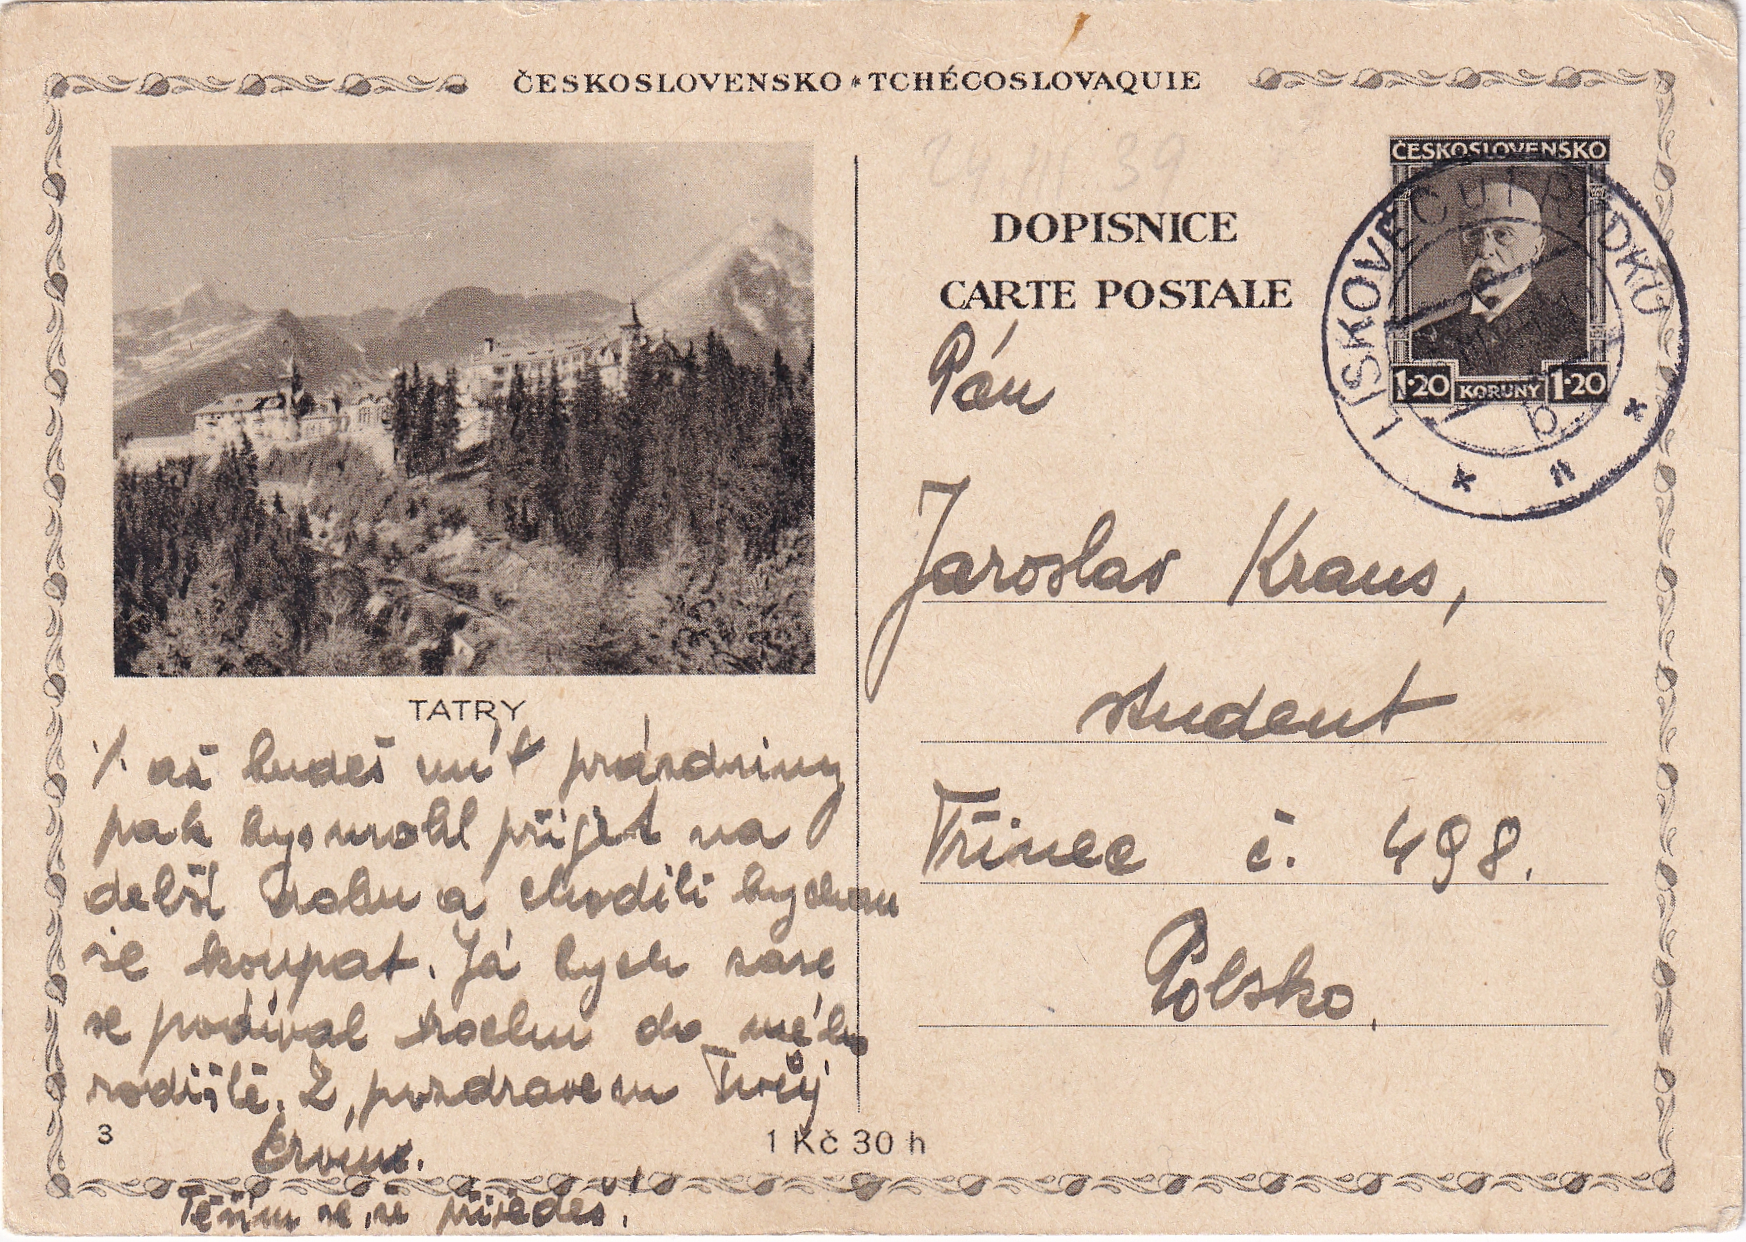 ČESKOSLOVENSKO * TCHÉCOSLOVAQUIE
24.III.39
DOPISNICE
CARTE POSTALE
ČESKOSLOVENSKO
1·20 KORUNY 1·20
LÍSKOVEC U FRÝDKU
b
TATRY
až budeš mít prázdniny
pak bys mohl přijet na
delší dobu a chodili bychom
se koupat. Já bych zase
se podíval trochu do mého
rodiště. Z pozdravem Tvůj
Ervín.
Těším se, že přijedeš.
3
1 Kč 30 h
Pán
Jaroslav Kraus,
student
Třinec č. 498.
Polsko.